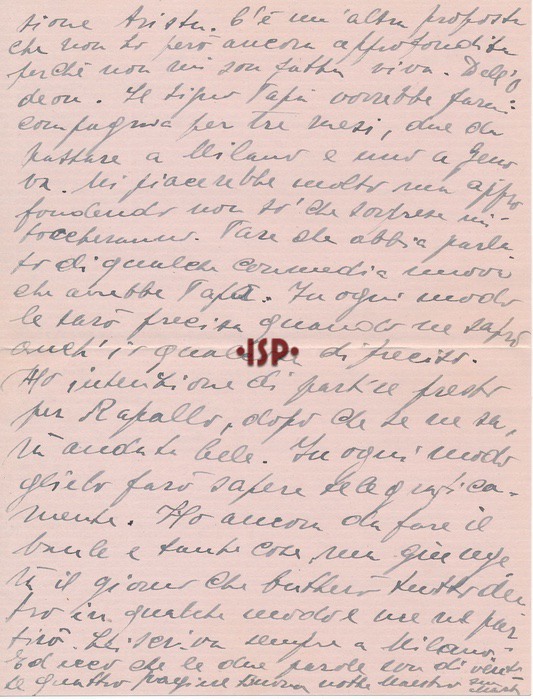 sione Arista. C'è un'altra proposta
che non ho però ancora approfondita
perchè non mi son fatta viva. Dell'O
deon. Il signor Papa vorrebbe farmi
compagnia per tre mesi, due da
passare a Milano e uno a Geno
va. Mi piacerebbe molto ma appro
fondendo non so' che sorprese mi
toccheranno. Pare che abbia parla
to di qualche commedia nuova
che avrebbe Papa. In ogni modo
le sarò precisa quando ne saprò
anch'io qualcosa di preciso.
•ISP•
Ho intenzione di partire presto
per Rapallo, dopo che se ne sa,
rà andata lele. In ogni modo
glielo farò sapere telegrafica-
mente. Ho ancora da fare il
baule e tante cose, ma giunge
rà il giorno che butterò tutto den
tro in qualche modo e me ne par
tirò. Lei scriva sempre a Milano.
Ed ecco che le due parole son diventate
le quattro pagine buona notte Maestro